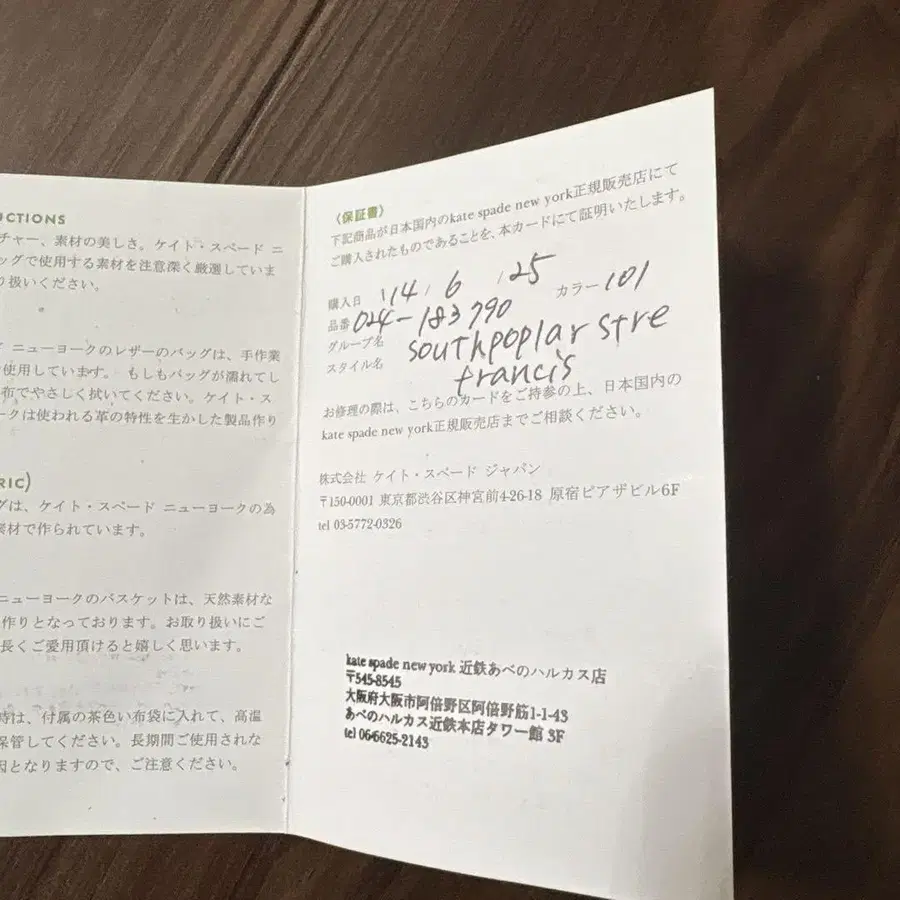 UCTIONS
チャー、素材の美しさ。ケイト・スペード ニ
ッグで使用する素材を注意深く厳選していま
り扱いください。
ニューヨークのレザーのバッグは、手作業
使用しています。 もしもバッグが濡れてし
布でやさしく拭いてください。ケイト・ス
ークは使われる革の特性を生かした製品作り
RIC)
グは、ケイト・スペード ニューヨークの為
素材で作られています。
ニューヨークのバスケットは、天然素材な
作りとなっております。お取り扱いにご
長くご愛用頂けると嬉しく思います。
時は、付属の茶色い布袋に入れて、高温
保管してください。長期間ご使用されな
因となりますので、ご注意ください。
〈保証書〉
下記商品が日本国内のkate spade new york正規販売店にて
ご購入されたものであることを、本カードにて証明いたします。
購入日 '14 / 6 / 25
品番 024-183790 カラー 101
グループ名 southpoplar stre
スタイル名 francis
お修理の際は、こちらのカードをご持参の上、日本国内の
kate spade new york正規販売店までご相談ください。
株式会社 ケイト・スペード ジャパン
〒150-0001 東京都渋谷区神宮前4-26-18 原宿ピアザビル6F
tel 03-5772-0326
kate spade new york 近鉄あべのハルカス店
〒545-8545
大阪府大阪市阿倍野区阿倍野筋1-1-43
あべのハルカス近鉄本店タワー館 3F
tel 06-6625-2143